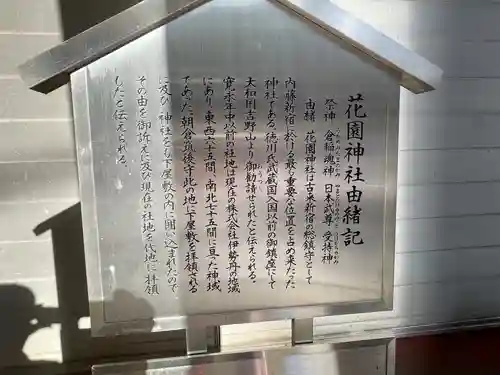 花園神社由緒記
祭神 倉稲魂神 日本武尊 受持神
由緒 花園神社は古来新宿の総鎮守として
内藤新宿に於ける最も重要な位置を占め来たった
神社である 徳川氏武蔵国入国以前の御鎮座にして
大和国吉野山より御勧請せられたと伝えられる。
寛永年中以前の社地は現在の株式会社伊勢丹の地域
にあり、東西六十五間、南北七十五間に亘った神域
であった 朝倉筑後守此の地に下屋敷を拝領される
に及び、神社をも下屋敷の内に囲い込まれたので
その由を御訴えに及び現在の社地を代地に拝領
したと伝えられる。